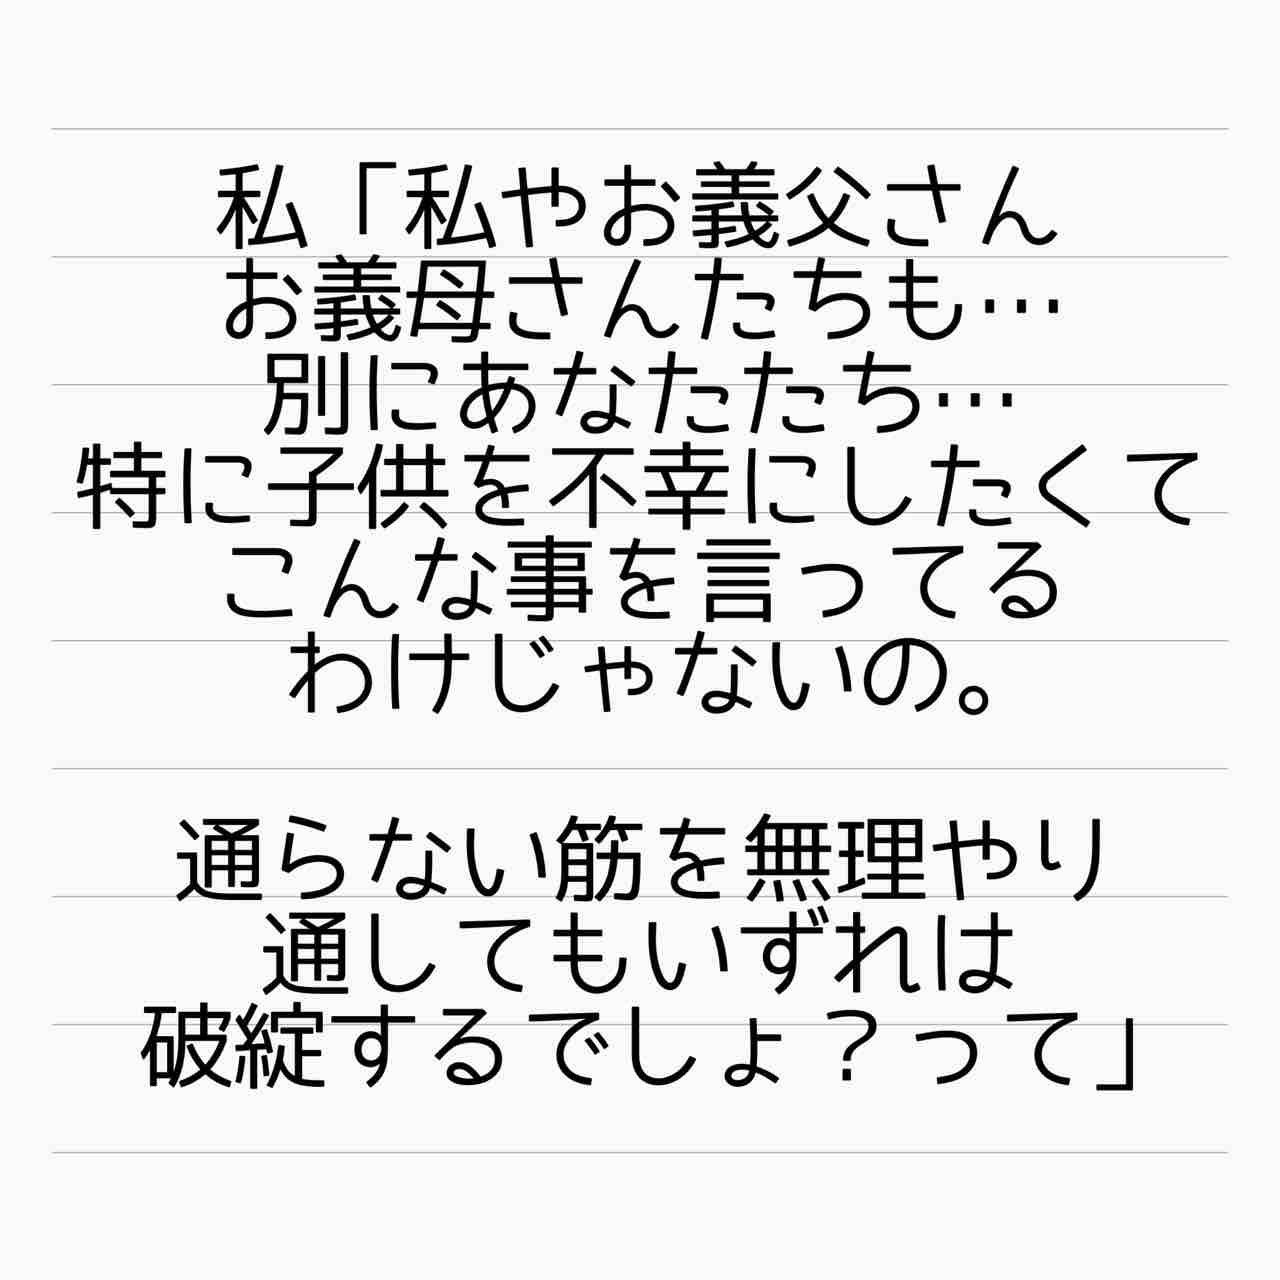 私「私やお義父さん
お義母さんたちも…
別にあなたたち…
特に子供を不幸にしたくて
こんな事を言ってる
わけじゃないの。
通らない筋を無理やり
通してもいずれは
破綻するでしょ？って」